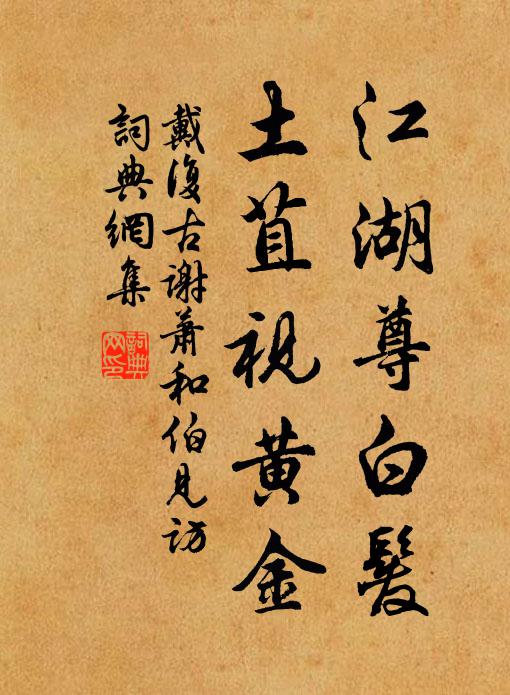 江湖尊白髮
土苴視黄金
戴復古谢萧和伯見访
詞典網集
詞典
网印